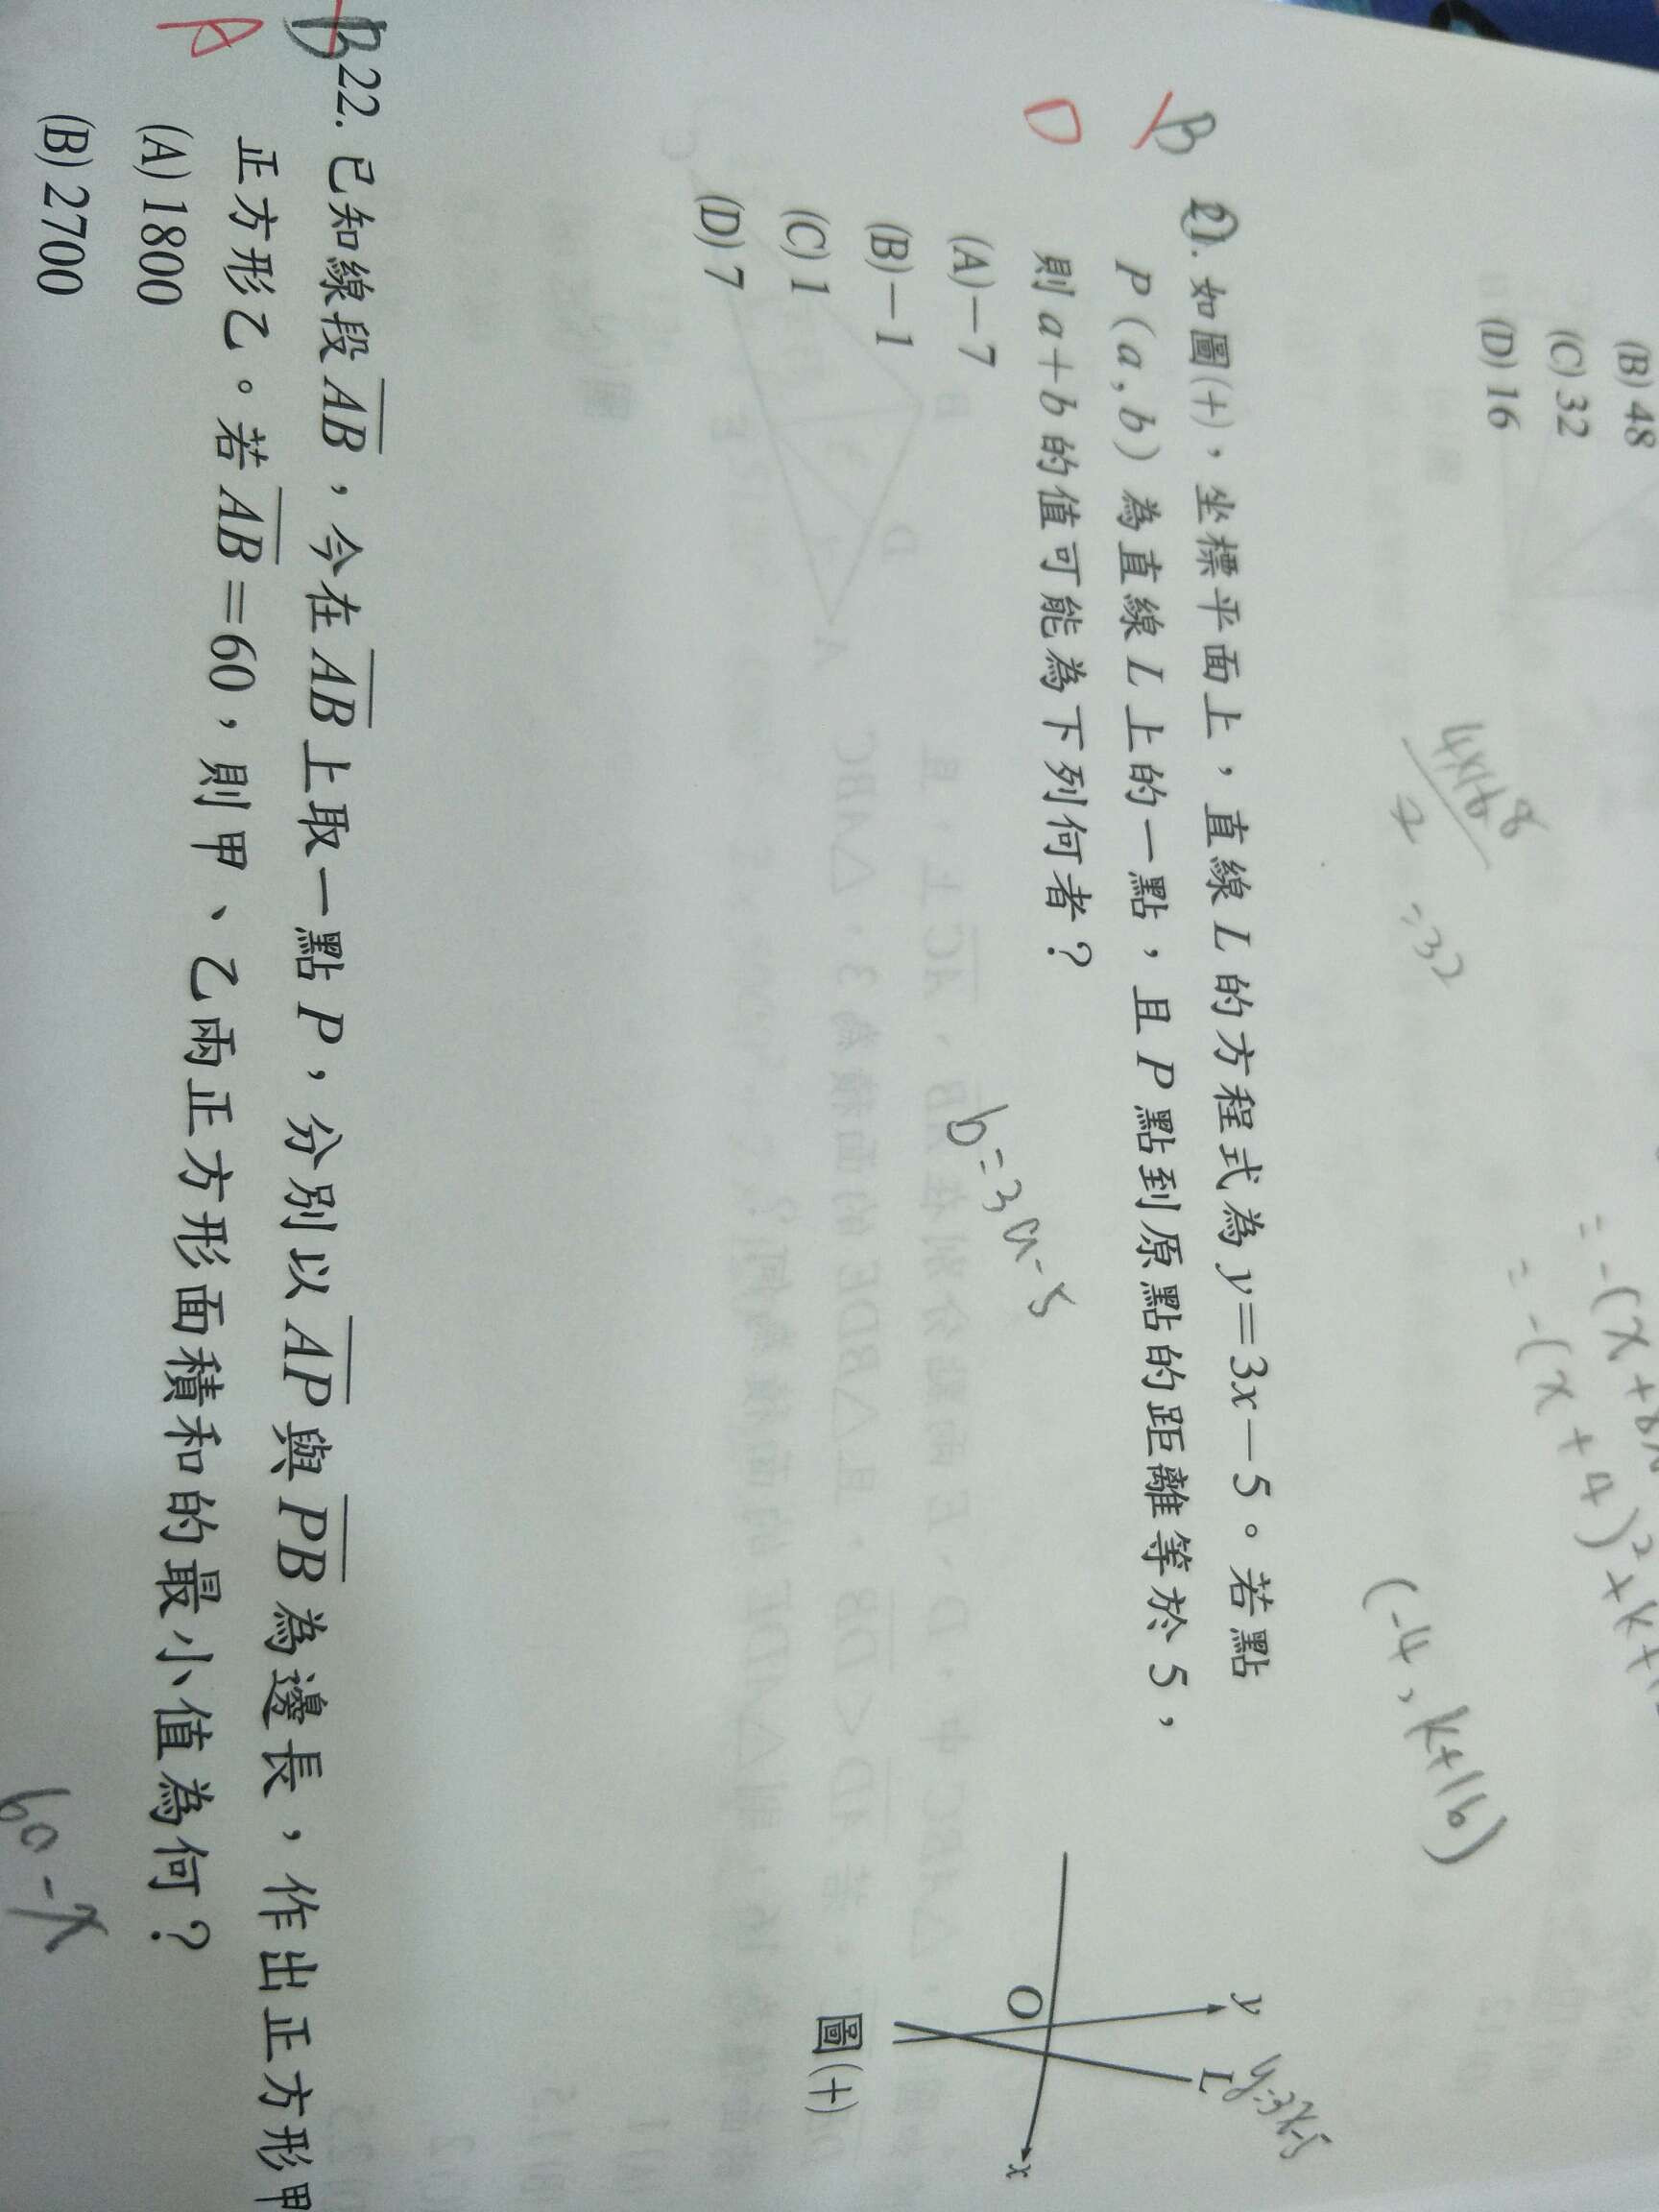 (B) 48
(C) 32
(D) 16
= -(x+8x
= -(x+4)²+k+1
4×16 8
2
=32
(-4, k+16)
B
D
21. 如圖(十)，坐標平面上，直線 L 的方程式為 y=3x－5。若點
P(a,b) 為直線 L 上的一點，且 P 點到原點的距離等於 5，
則 a＋b 的值可能為下列何者？
(A)－7
(B)－1
(C) 1
(D) 7
b=3a-5
y
L
y=3x-5
O
x
圖(十)
B
A
22. 已知線段AB，今在AB上取一點 P，分別以AP與PB為邊長，作出正方形甲
正方形乙。若AB＝60，則甲、乙兩正方形面積和的最小值為何？
(A) 1800
(B) 2700
60-x